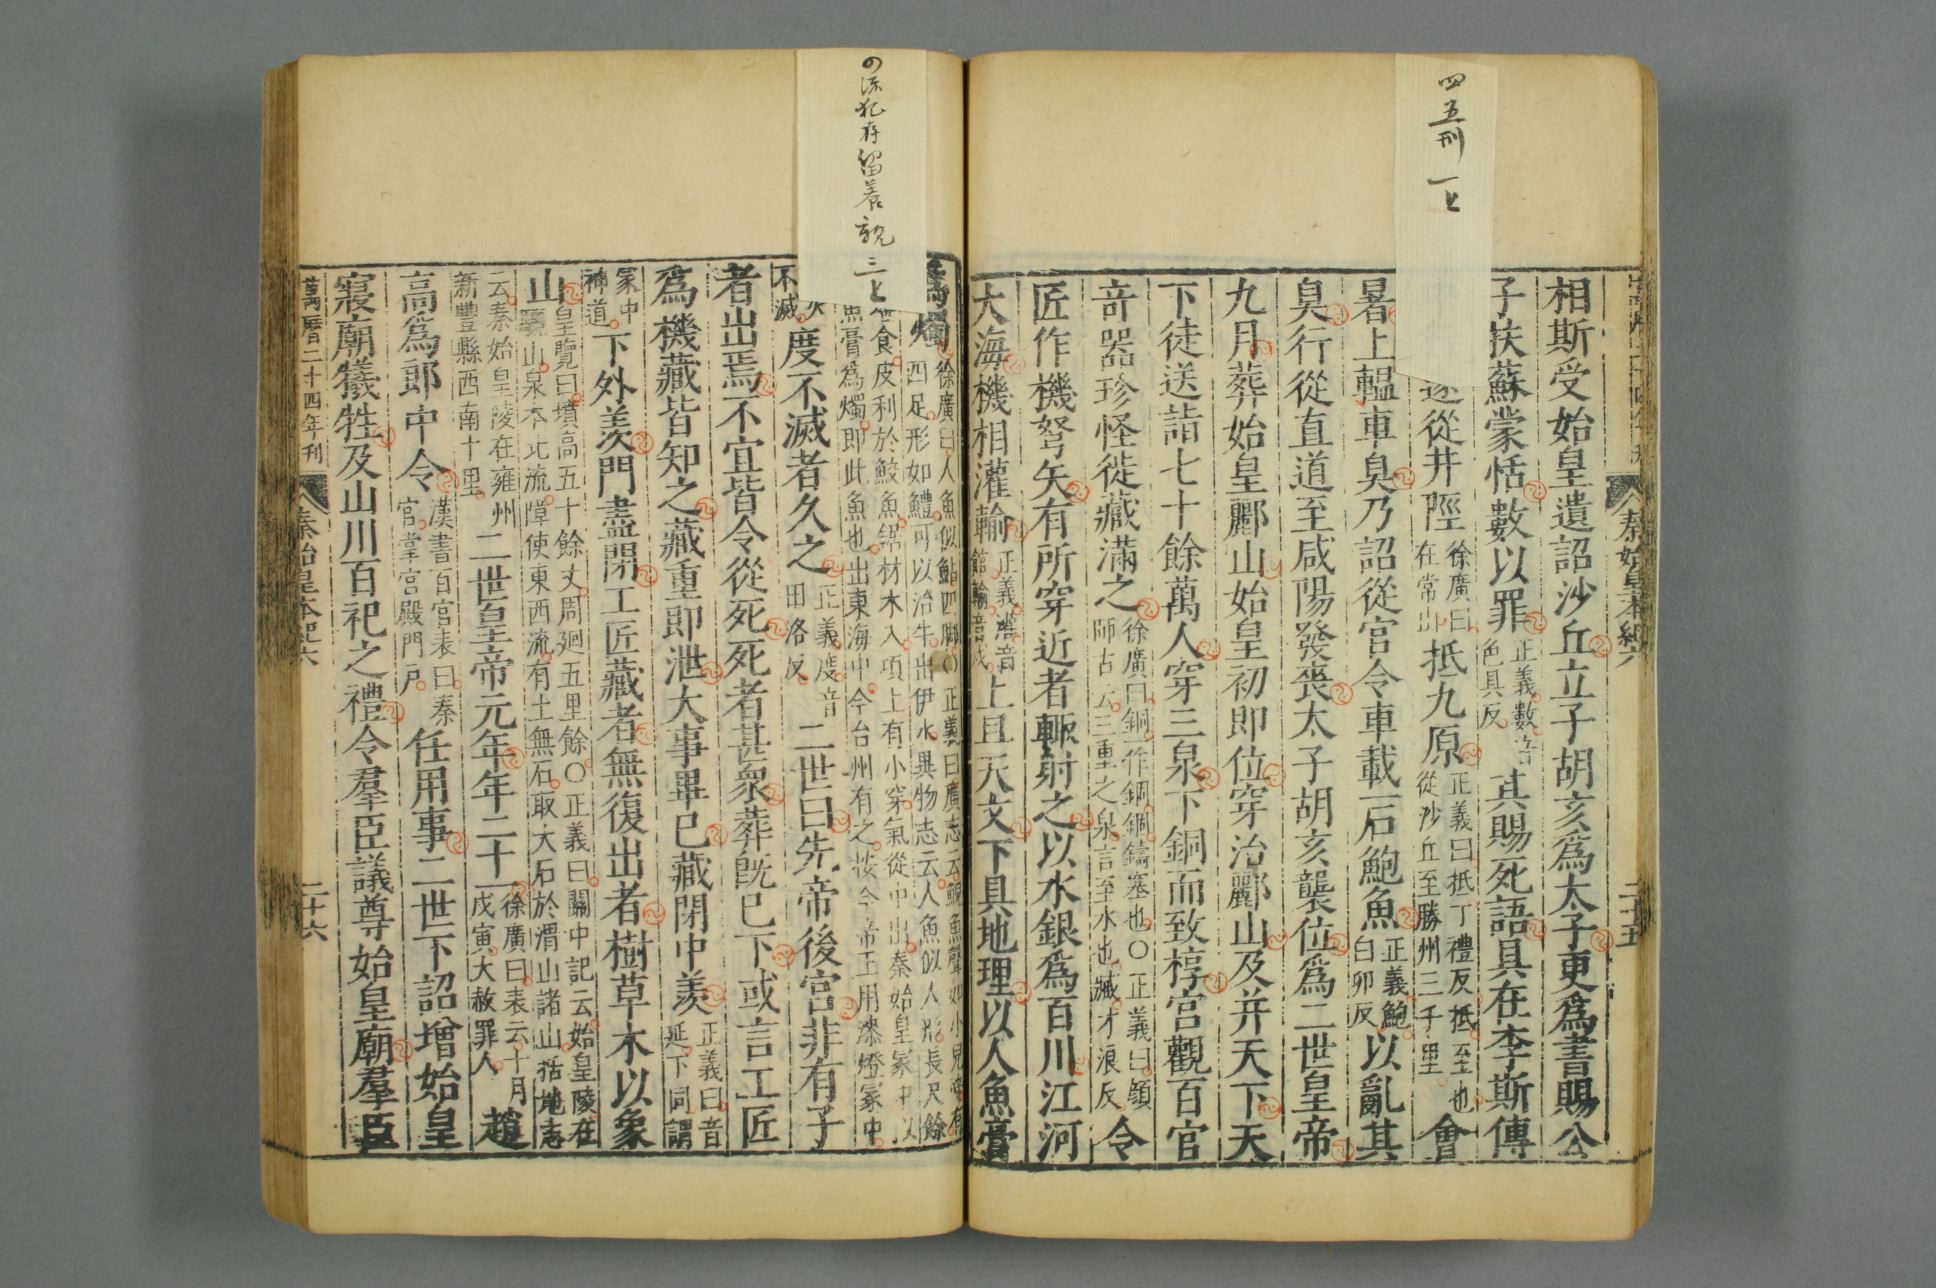 四五刑一上
秦始皇本紀六
二十五
相斯受始皇遺詔沙丘立子胡亥爲太子更爲書賜公
子扶蘇蒙恬數以罪正義數音色具反其賜死語具在李斯傳
從井陘徐廣曰在常山抵九原正義曰抵丁禮反抵至也從沙丘至勝州三千里會
暑上轀車臭乃詔從官令車載一石鮑魚正義鮑白卯反以亂其
臭行從直道至咸陽發喪太子胡亥襲位爲二世皇帝
九月葬始皇酈山始皇初即位穿治酈山及并天下天
下徒送詣七十餘萬人穿三泉下銅而致椁宮觀百官
奇器珍怪徙藏滿之徐廣曰銅一作錮錮鑄塞也○正義曰顔師古云三重之泉言至水也臧才浪反令
匠作機弩矢有所穿近者輒射之以水銀爲百川江河
大海機相灌輸正義灌音館輸音戍上具天文下具地理以人魚膏
の流犯存留養親三上
爲燭徐廣曰人魚似鮎四脚○正義曰廣志云鯢魚聲如小兒啼有四足形如鱧可以治牛出伊水異物志云人魚似人形長尺餘
食皮利於鮫魚鋸材木入項上有小穿氣從中出秦始皇冢中以魚膏爲燭即此魚也出東海中今台州有之按今帝王用漆燈冢中
不滅度不滅者久之正義度音田洛反二世曰先帝後宮非有子
者出焉不宜皆令從死死者甚衆葬旣已下或言工匠
爲機藏皆知之藏重即泄大事畢已藏閉中羨正義曰音延下同謂
冢中神道下外羨門盡閉工匠藏者無復出者樹草木以象
山皇覽曰墳高五十餘丈周廻五里餘○正義曰關中記云始皇陵在驪山泉本北流障使東西流有土無石取大石於渭山諸山括地志
云秦始皇陵在雍州新豐縣西南十里二世皇帝元年年二十一徐廣曰表云十月戊寅大赦罪人趙
高爲郎中令漢書百官表曰秦官掌宮殿門戶任用事二世下詔增始皇
寢廟犧牲及山川百祀之禮令羣臣議尊始皇廟羣臣
萬曆二十四年刊
秦始皇本紀六
二十六